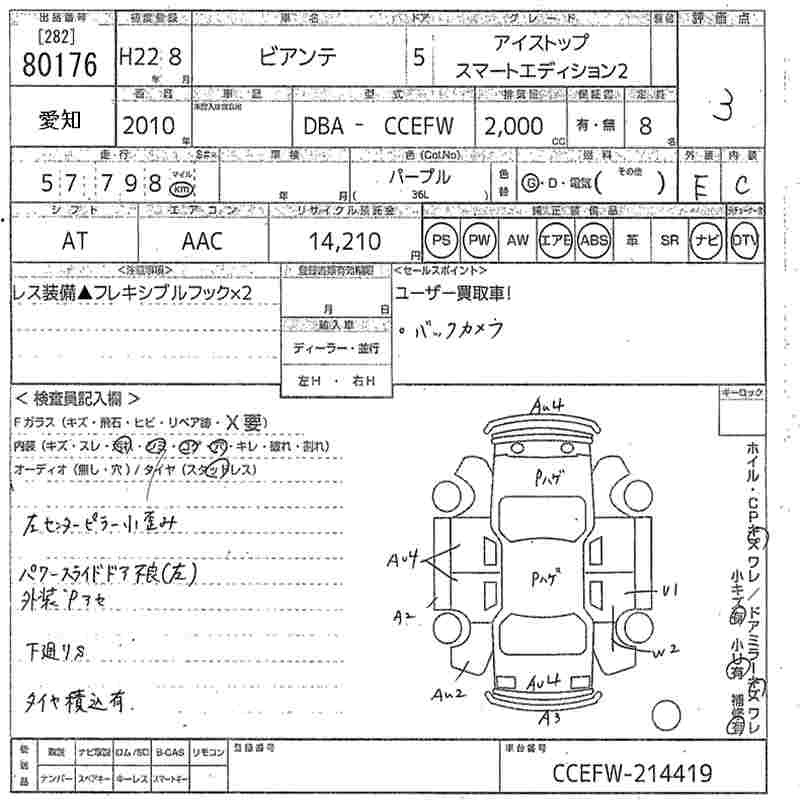 出品番号 初度登録 車名 ドア グレード 評価点
[282]
80176 H22 8 年 月 ビアンテ 5 アイストップ
スマートエディション2 3
愛知 2010 年 車歴 型式 排気量 保証書 定員
DBA - CCEFW 2,000 CC 有・無 8 名
走行 車検 色(Col.No) 色替 燃料 外装 内装
57,798 マイル km 年 月 パープル
( 36L ) G・D・電気( その他 ) E C
シフト エアコン リサイクル預託金 純正装備品
AT AAC 14,210 円 PS PW AW エアB ABS 革 SR ナビ DTV
<注意事項> 登録書類有効期限 <セールスポイント>
レス装備▲フレキシブルフック×2 ユーザー買取車!
月 日
輸入車 。バックカメラ
ディーラー・並行
左H ・ 右H
< 検査員記入欄 > キーロック
Fガラス(キズ・飛石・ヒビ・リペア跡・X要)
内装(キズ・スレ・汚れ・シミ・コゲ・穴・キレ・破れ・割れ)
オーディオ(無し・穴)/タイヤ(スタッドレス)
左センターピラー小歪み
パワースライドドア不良(左)
外装Pアセ
下廻りS
タイヤ積込有
AU4
Pハゲ
AU4
Pハゲ
U1
A2
W2
AU2
AU4
A3
ホイル・CPキズ ワレ/ドアミラーキズ ワレ
小キズ有 小U有 補修有
後送品 取説 ナビ取説 ロム/SD B-CAS リモコン 登録番号 車台番号
ナンバー スペアキー キーレス スマートキー
CCEFW-214419